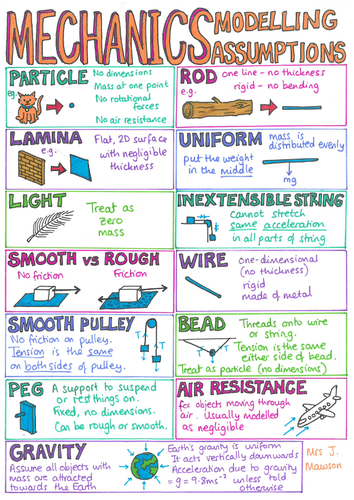 MECHANICS MODELLING ASSUMPTIONS
PARTICLE
No dimensions
eg.
Mass at one point
No rotational
forces
No air resistance
ROD
one line - no thickness
e.g.
rigid - no bending
LAMINA
e.g.
Flat, 2D surface
with negligible
thickness
UNIFORM
mass is
distributed evenly
put the weight
in the middle
mg
LIGHT
Treat as
zero
mass
INEXTENSIBLE STRING
cannot stretch
same acceleration
in all parts of string
SMOOTH vs ROUGH
No friction
Friction
WIRE
one-dimensional
(no thickness)
rigid
made of metal
SMOOTH PULLEY
No friction on pulley.
Tension is the same
on both sides of pulley.
T
T
BEAD
Threads onto wire
or string.
Tension is the same
either side of bead.
Treat as particle (no dimensions)
T
T
PEG
A support to suspend
or rest things on.
Fixed, no dimensions.
Can be rough or smooth.
AIR RESISTANCE
for objects moving through
air. Usually modelled
as negligible
GRAVITY
Assume all objects with
mass are attracted
towards the Earth
Earth's gravity is uniform
It acts vertically downwards
Acceleration due to gravity
= g = 9.8ms⁻² unless told
otherwise
Mrs J.
Mawson